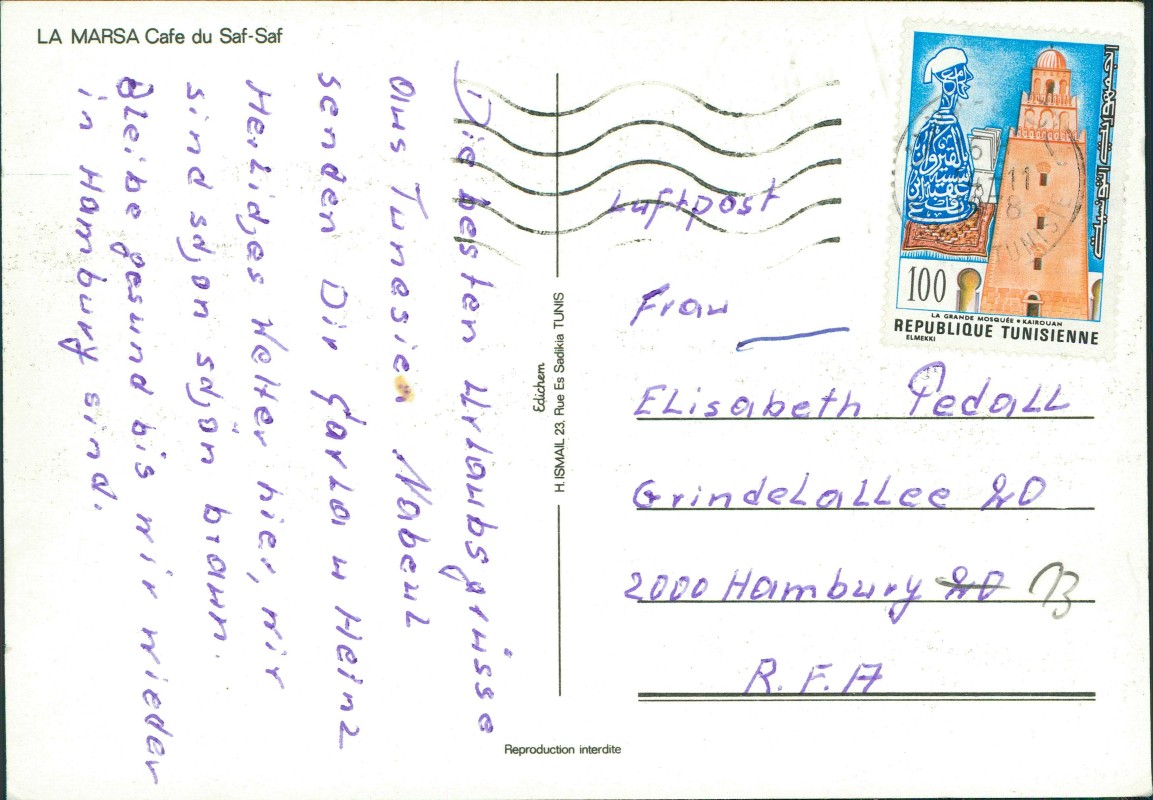 LA MARSA Cafe du Saf-Saf
Die besten Urlaubsgrüsse
aus Tunesien Nabeul
senden Dir Carla u Heinz
Herlidjes Wetter hier, wir
sind sdjon sdjön braun.
Bleibe gesund bis wir wieder
in Hamburg sind.
Edichem
H. ISMAIL 23, Rue Es Sadikia TUNIS
Reproduction interdite
Luftpost
Frau
Elisabeth Pedall
Grindelallee 20
2000 Hamburg 20 13
R.F.A
100
LA GRANDE MOSQUÉE • KAIROUAN
REPUBLIQUE TUNISIENNE
ELMEKKI
11
8
TUNISIE